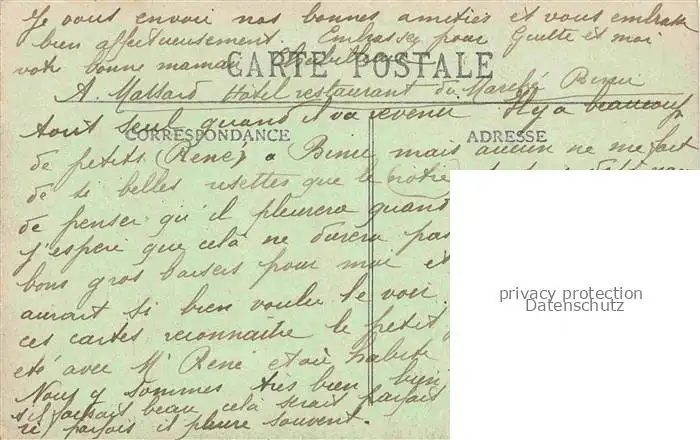 Je vous envoie nos bonnes amitiés et vous embrasse
bien affectueusement. Embrassez pour Guitte et moi
votre bonne maman
CARTE POSTALE
A. Massard Hôtel restaurant du Marché Binic
tout seul quand il va revenir Il y a beaucoup
CORRESPONDANCE
ADRESSE
de petits (René) a Binic mais aucun ne me fait
de si belles risettes que le notre
de penser qu'il pleurera quand
j'espère que celà ne durera pas
bons gros baisers pour moi et
aurait si bien voulu le voir.
ces cartes reconnaitre le petit
été avec Mr René et où habite
Nous y sommes très bien bien
s'il faisait beau celà serait parfait
si parfois il pleure souvent.
privacy protection
Datenschutz